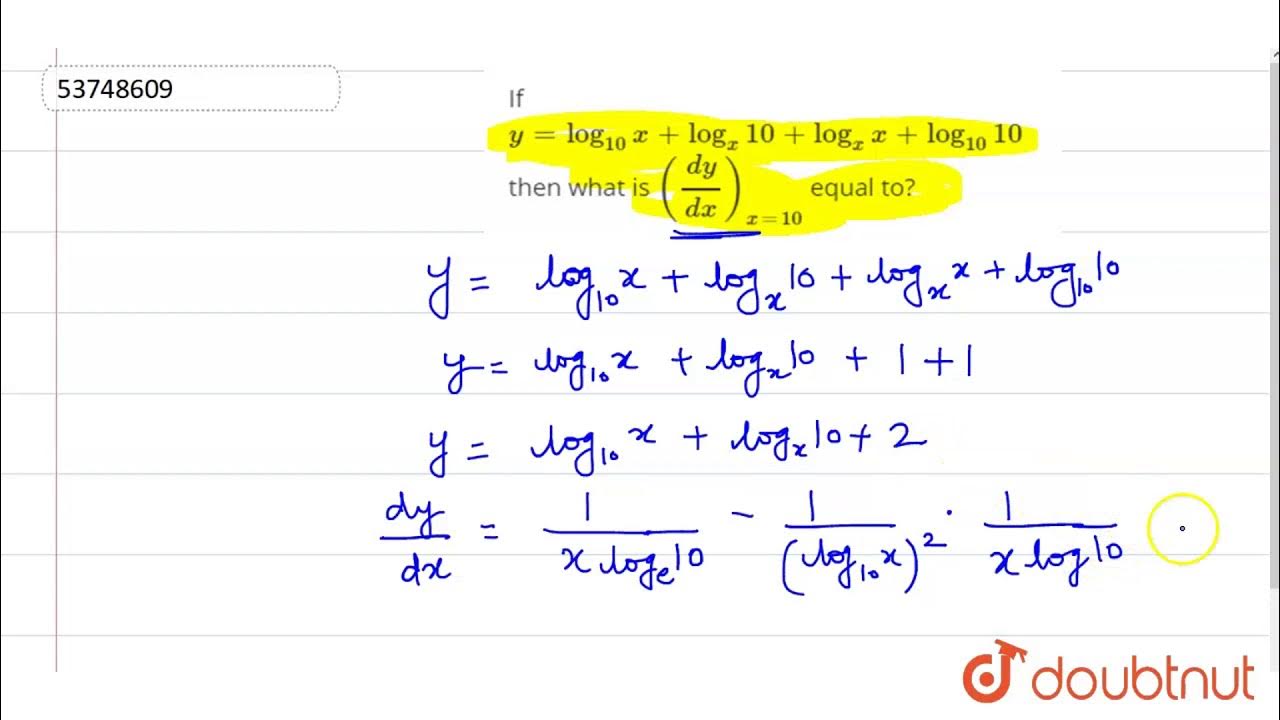 53748609
If
y = log₁₀ x + logₓ 10 + logₓ x + log₁₀ 10
then what is (dy/dx)ₓ₌₁₀ equal to?
y = log₁₀ x + logₓ 10 + logₓ x + log₁₀ 10
y = log₁₀ x + logₓ 10 + 1 + 1
y = log₁₀ x + logₓ 10 + 2
dy/dx = 1/(x logₑ 10) - 1/(log₁₀ x)² · 1/(x log 10)
doubtnut